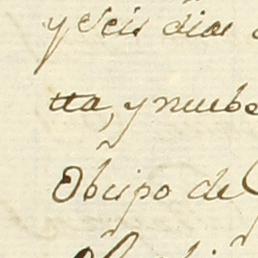 y Seis dias
tta, y nuebe
Obispo de